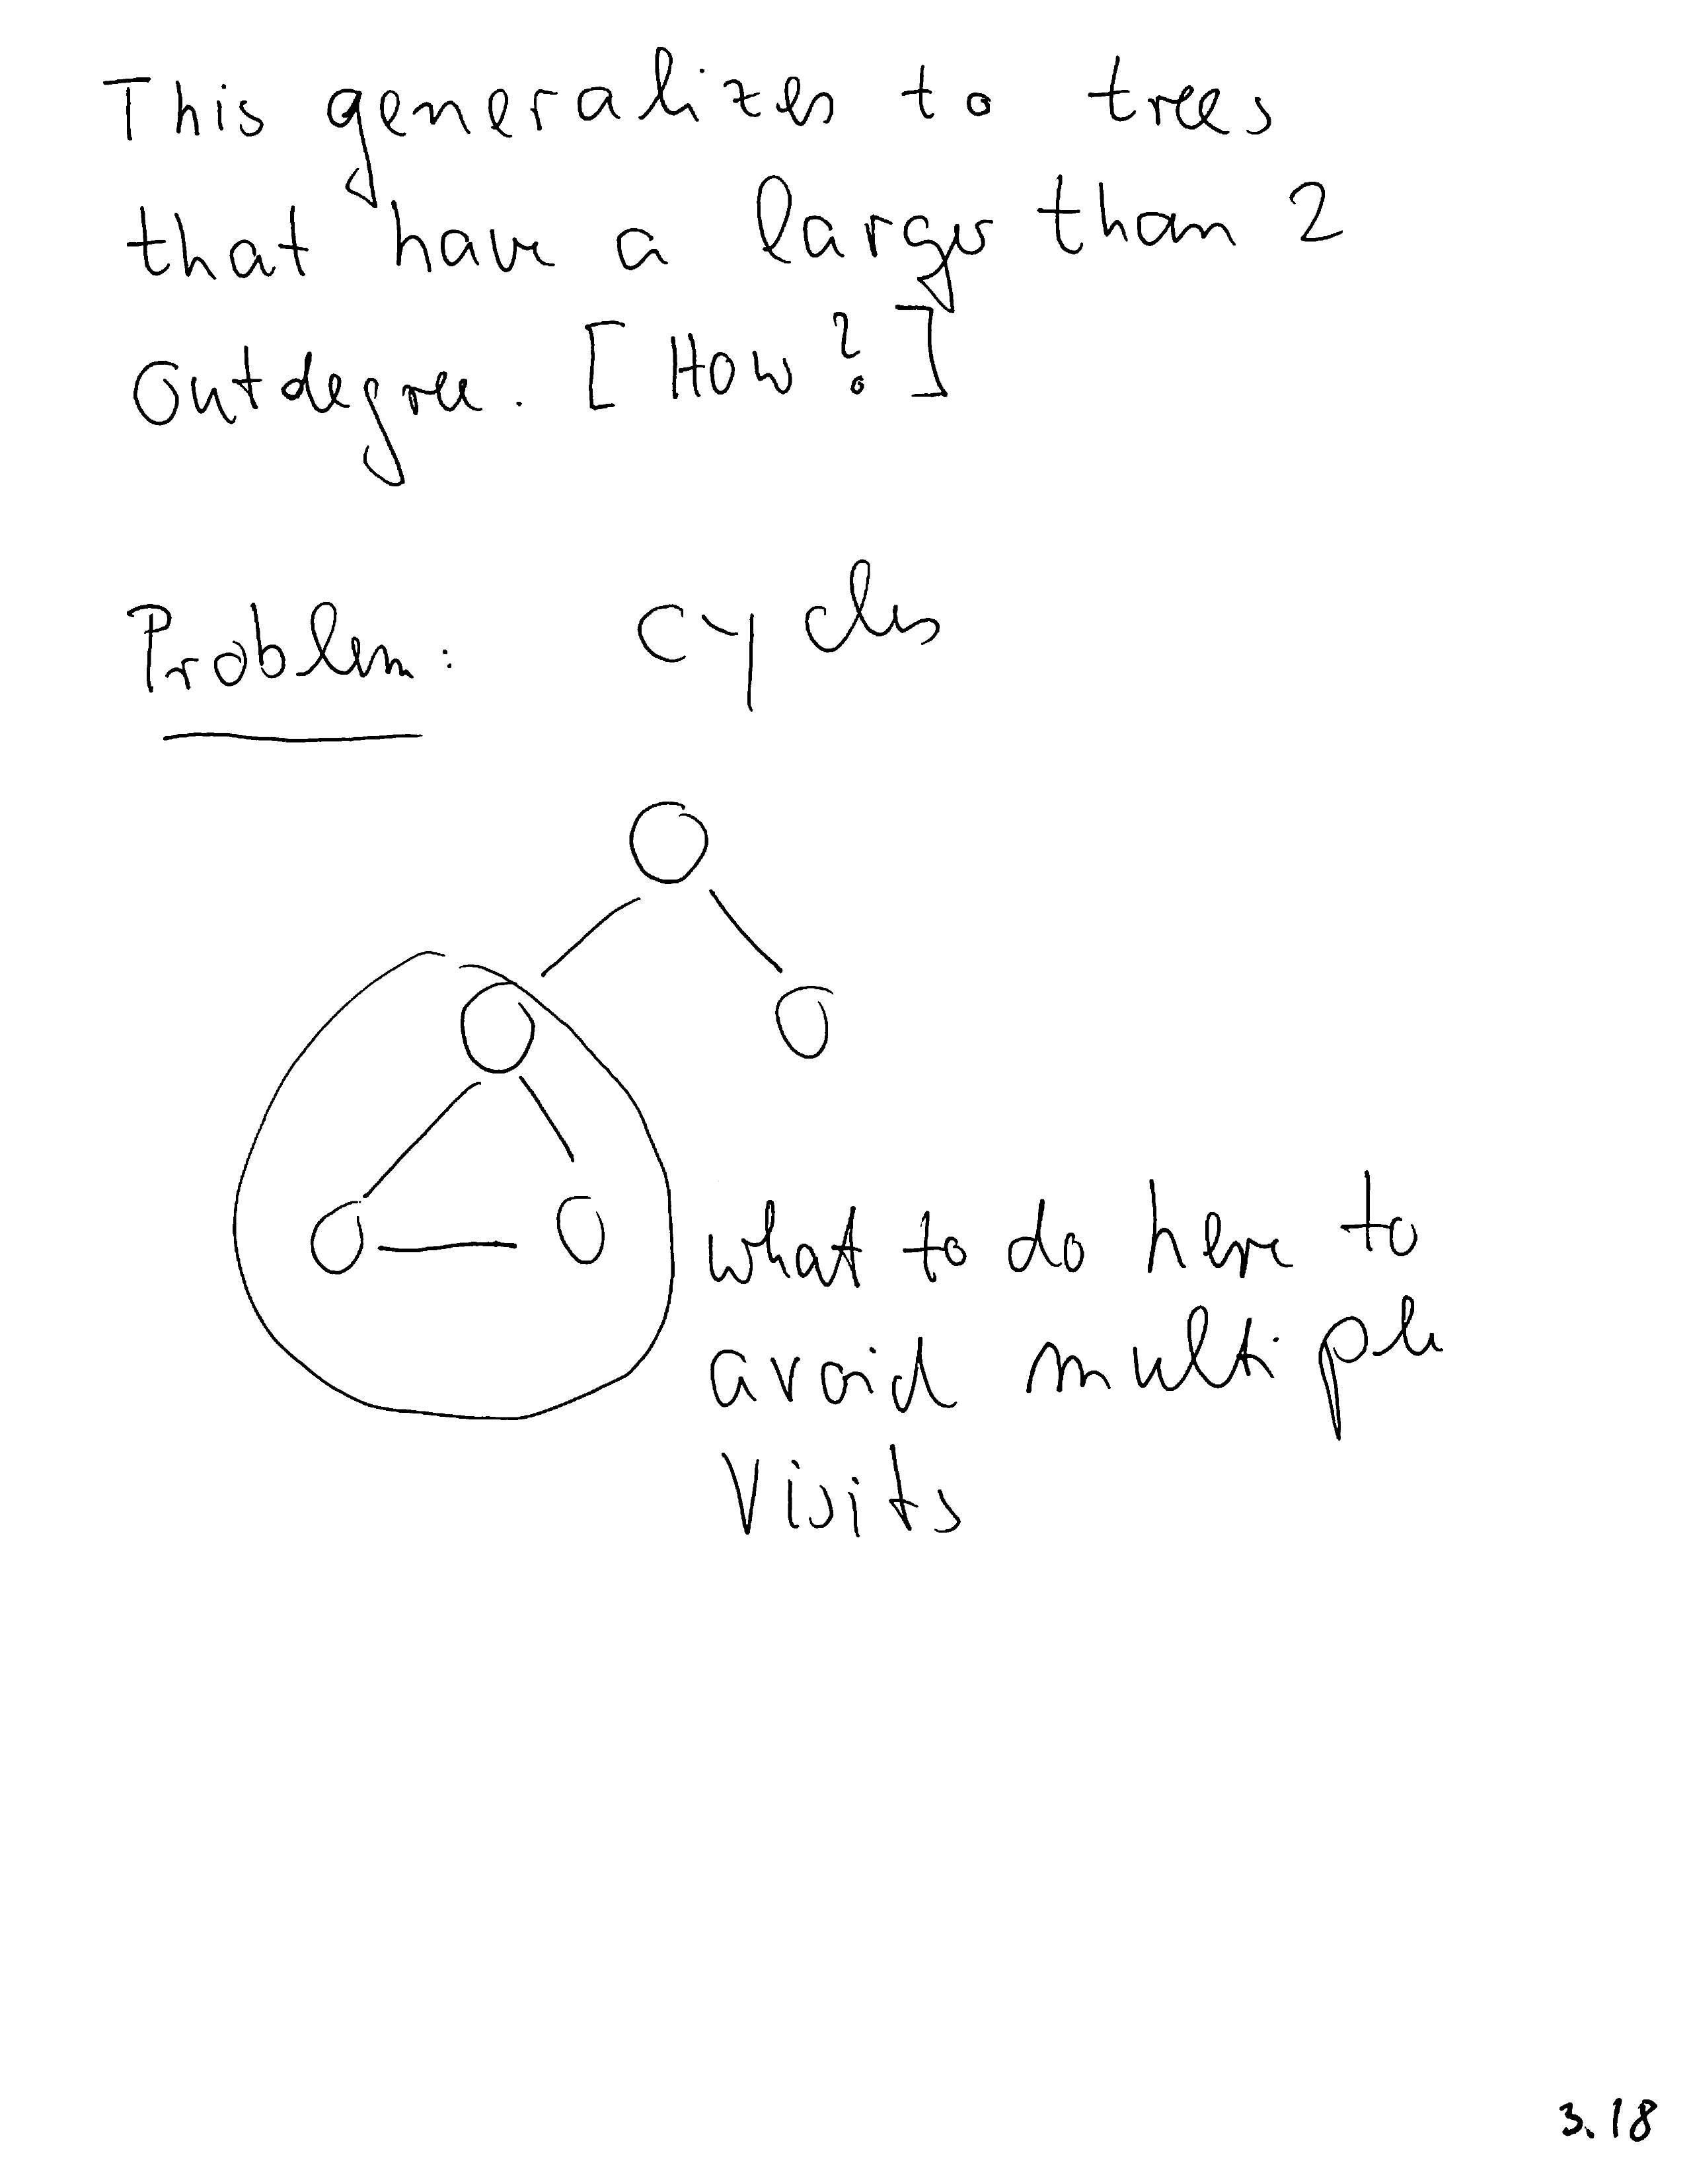 This generalizes to trees
that have a larger than 2
Outdegree. [How?]
Problem: cycles
what to do here to
avoid multiple
Visits
3.18